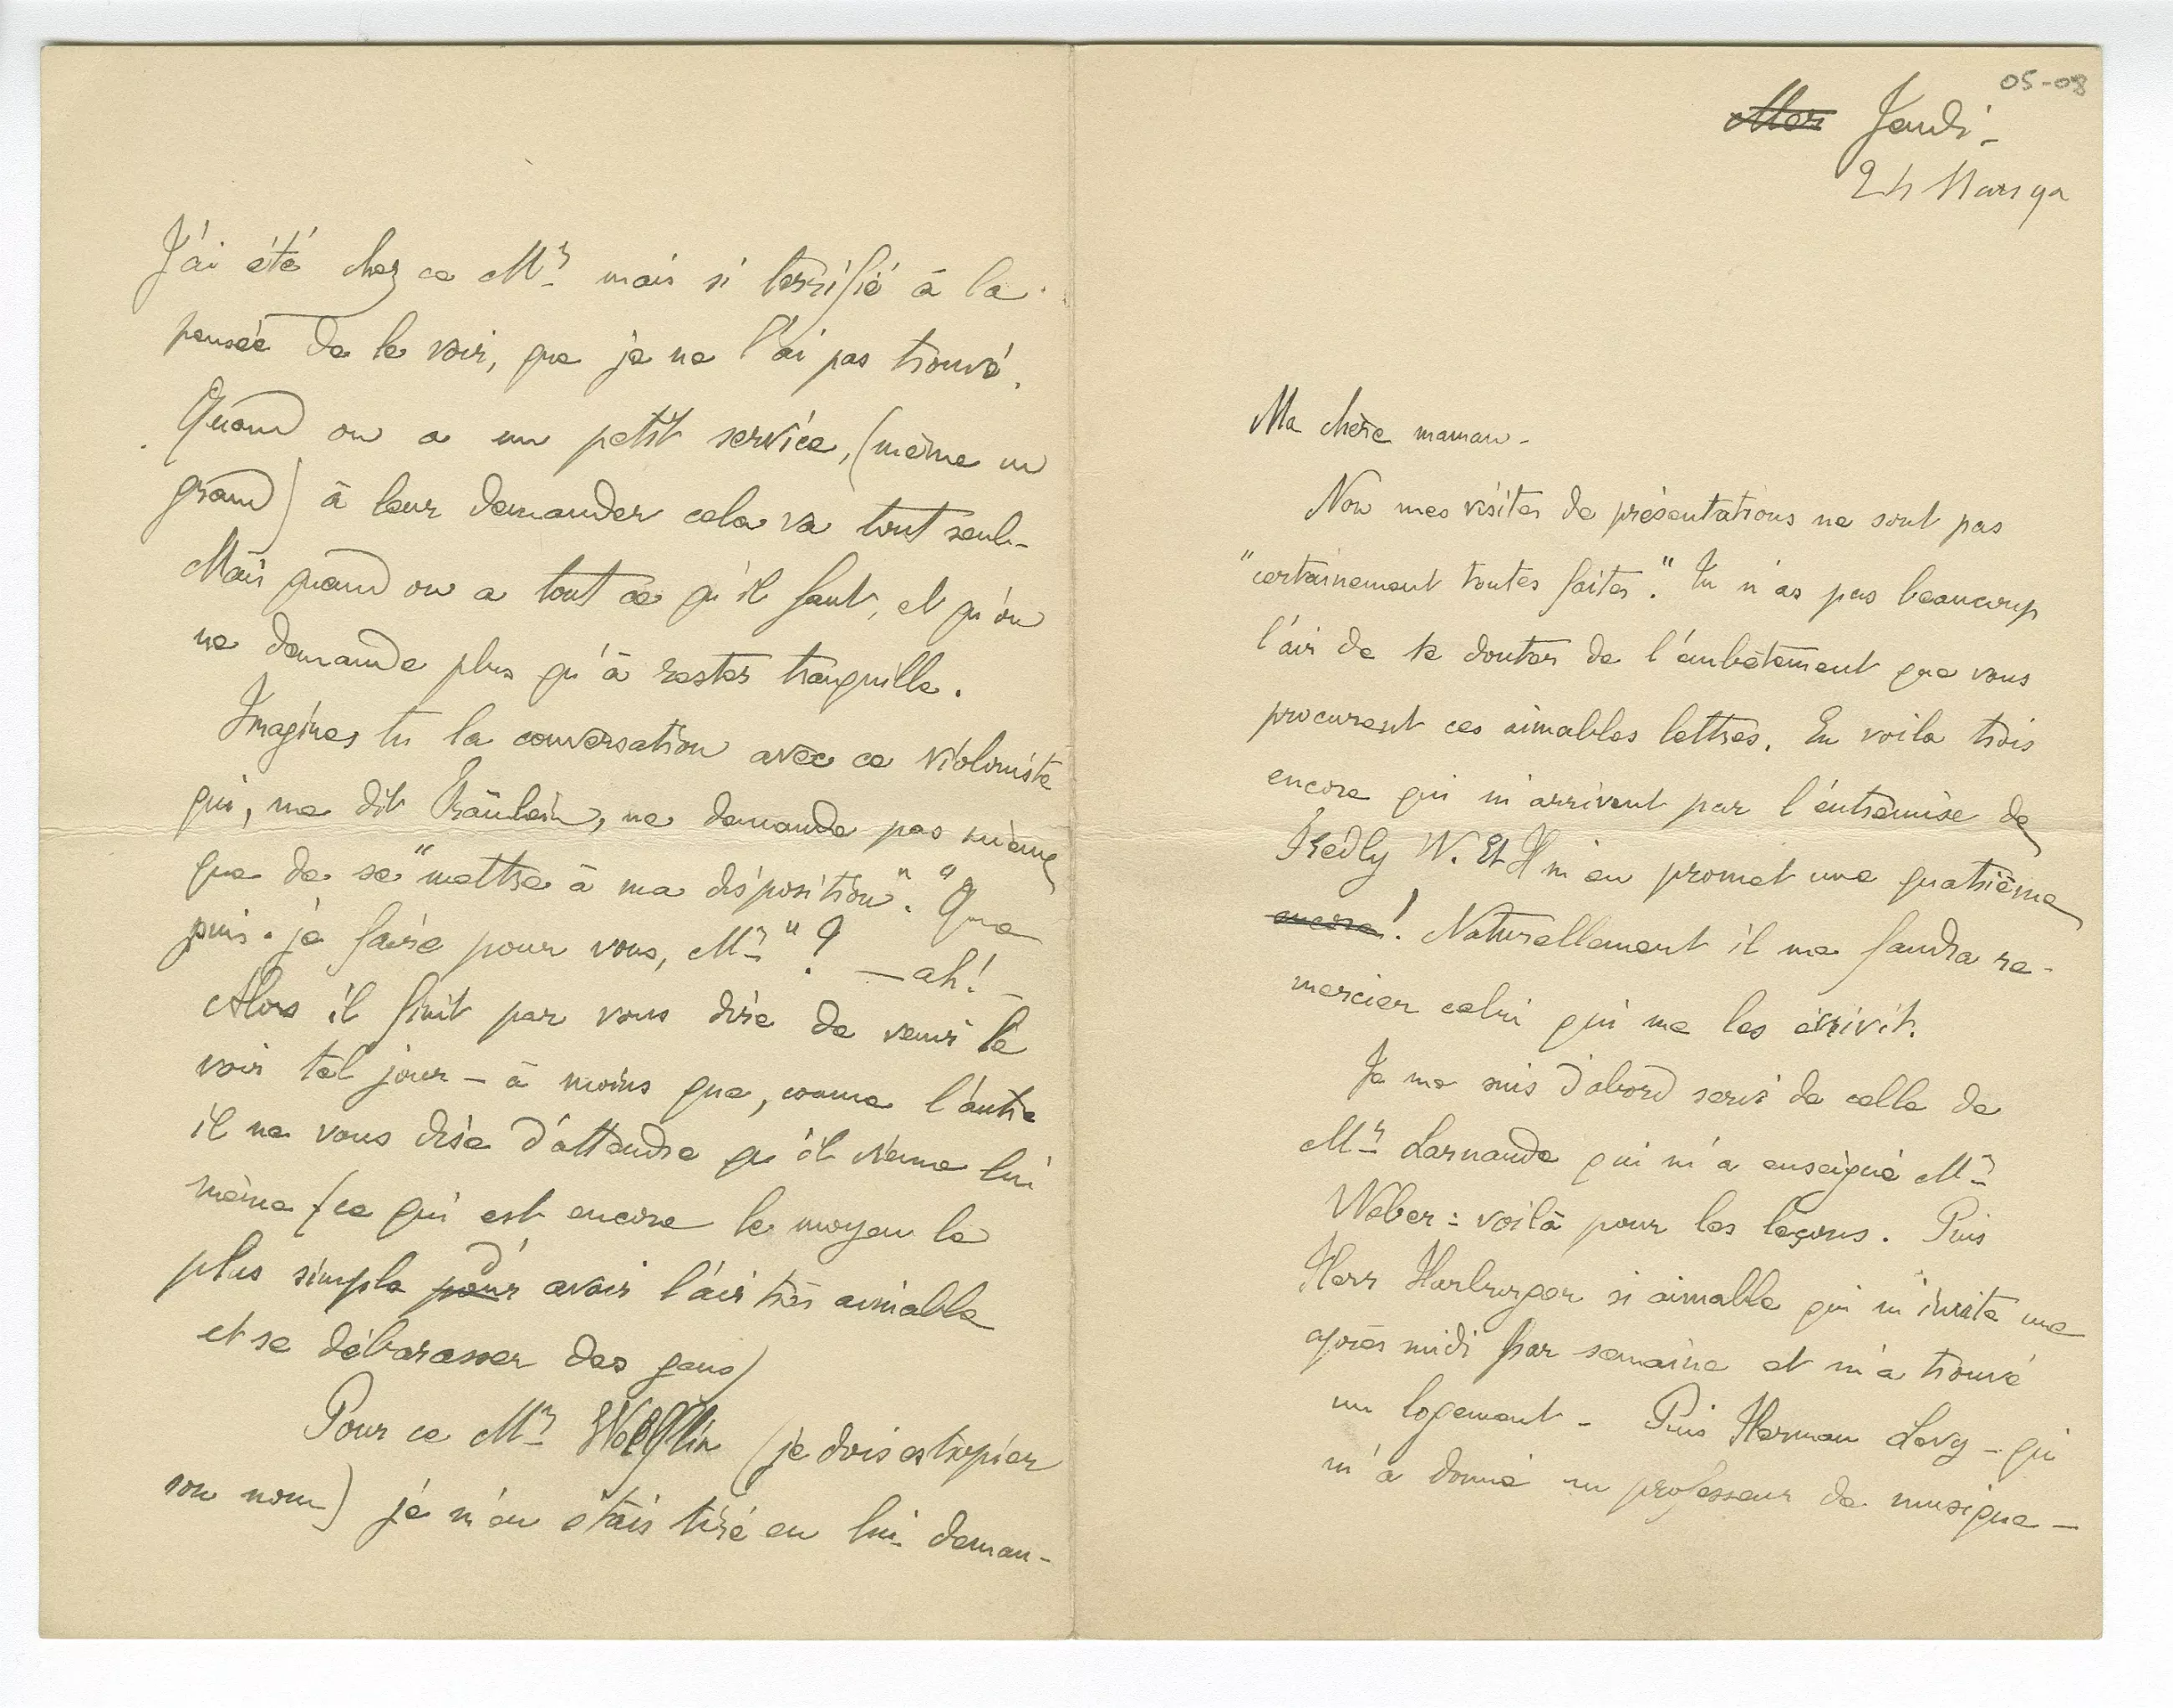 05-08
Mer Jeudi -
24 Mars 92
Ma chère maman -
Non mes visites de présentations ne sont pas
"certainement toutes faites." Tu n'as pas beaucoup
l'air de te douter de l'embêtement que vous
procurent ces aimables lettres. En voila trois
encore qui m'arrivent par l'entremise de
W. Et H m'en promet une quatrième
encore! Naturellement il me faudra re-
mercier celui qui me les écrivit.
Je me suis d'abord servi de celle de
Mr Larnaude qui m'a enseigné Mr
Weber : voilà pour les leçons. Puis
Herr Harburger si aimable qui m'invite une
après midi par semaine et m'a trouvé
un logement - Puis Herman Levy - qui
m'a donné un professeur de musique -
J'ai été chez ce Mr mais si terrifié à la
pensée de le voir, que je ne l'ai pas trouvé.
Quand on a un petit service, (même un
grand) à leur demander cela va tout seul -
Mais quand on a tout ce qu'il faut, et qu'on
ne demande plus qu'à rester tranquille.
Imagines tu la conversation avec ce violoniste
qui, me dit Fräulein, ne demande pas mieux
que de se "mettre à ma disposition". "Que
puis-je faire pour vous, Mr" ? — ah! -
Alors il finit par vous dire de venir le
voir tel jour - à moins que, comme l'autre
il ne vous dise d'attendre qu'il vienne lui
même (ce qui est encore le moyen le
plus simple pour d'avoir l'air très aimable
et se débarasser des gens)
Pour ce Mr Wölflin (je dois estropier
son nom) je m'en étais tiré en lui deman-